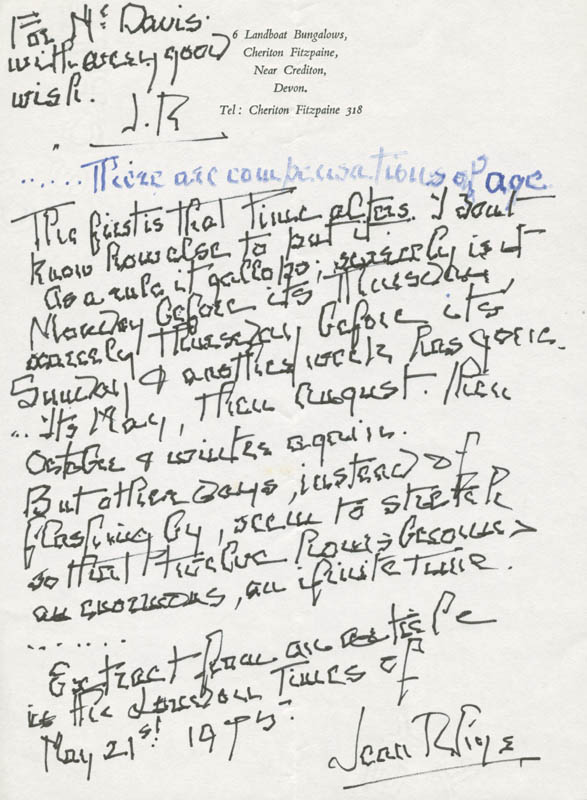 For Mr Davis.
with every good
wish.
J.R
6 Landboat Bungalows,
Cheriton Fitzpaine,
Near Crediton,
Devon.
Tel: Cheriton Fitzpaine 318
...... There are compensations of age
The first is that Time alters. I don't
know how else to put it.
As a rule it gallops; scarcely is it
Monday before its Thursday,
scarcely Thursday before its
Sunday & another week has gone.
... its May, then August. Then
October & winter again.
But other days, instead of
flashing by, seem to stretch
so that twelve hours become
an enormous, an ifinite time.
........
Extract from an article
in the London Times of
May 21st 1975.
Jean Rhys